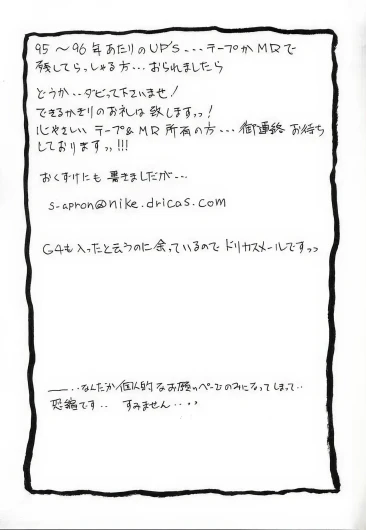 95〜96年あたりのUP'S...テープかMDで
残してらっしゃる方...おられましたら
どうか..ダビって下さいませ!
できるかぎりのお礼は致しますッ!
心やさしい テープ&MD 所有の方...御連絡 お待ち
しておりますッ!!!
おくずけにも 書きましたが...
s-apron@nike.dricas.com
G4も入ったと云うのに余っているので ドリカスメールですッっ
——..なんだか個人的なお願いぺーじのみになってしまって..
恐縮です.. すみません...